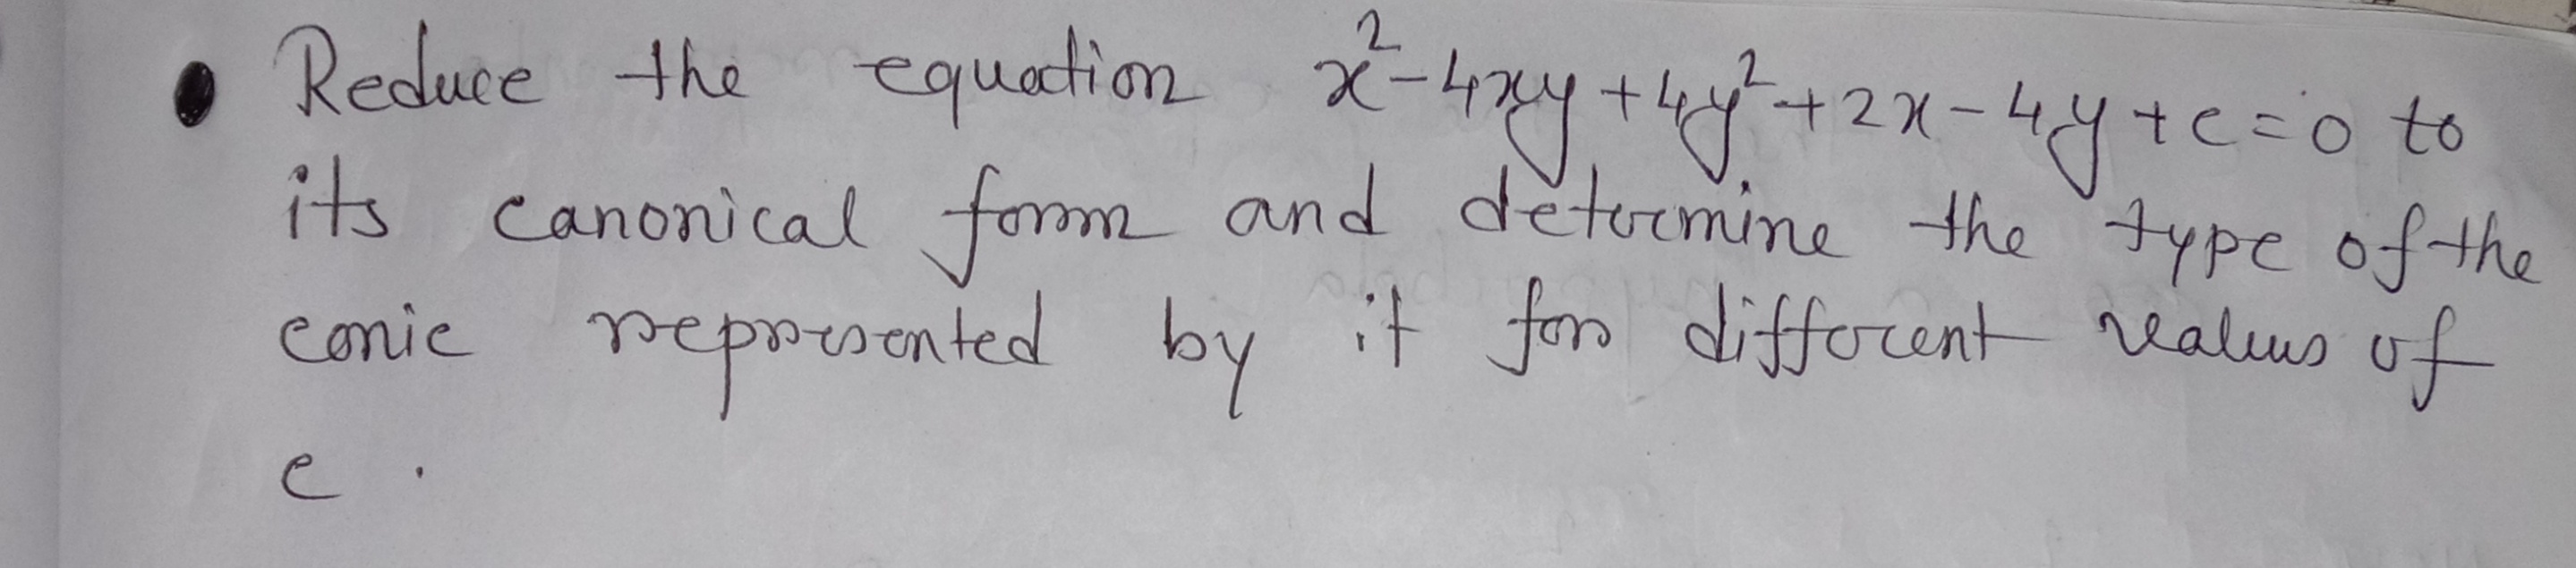 • Reduce the equation x²-4xy+4y²+2x-4y+c=0 to
its canonical form and determine the type of the
conic represented by it for different values of
c.